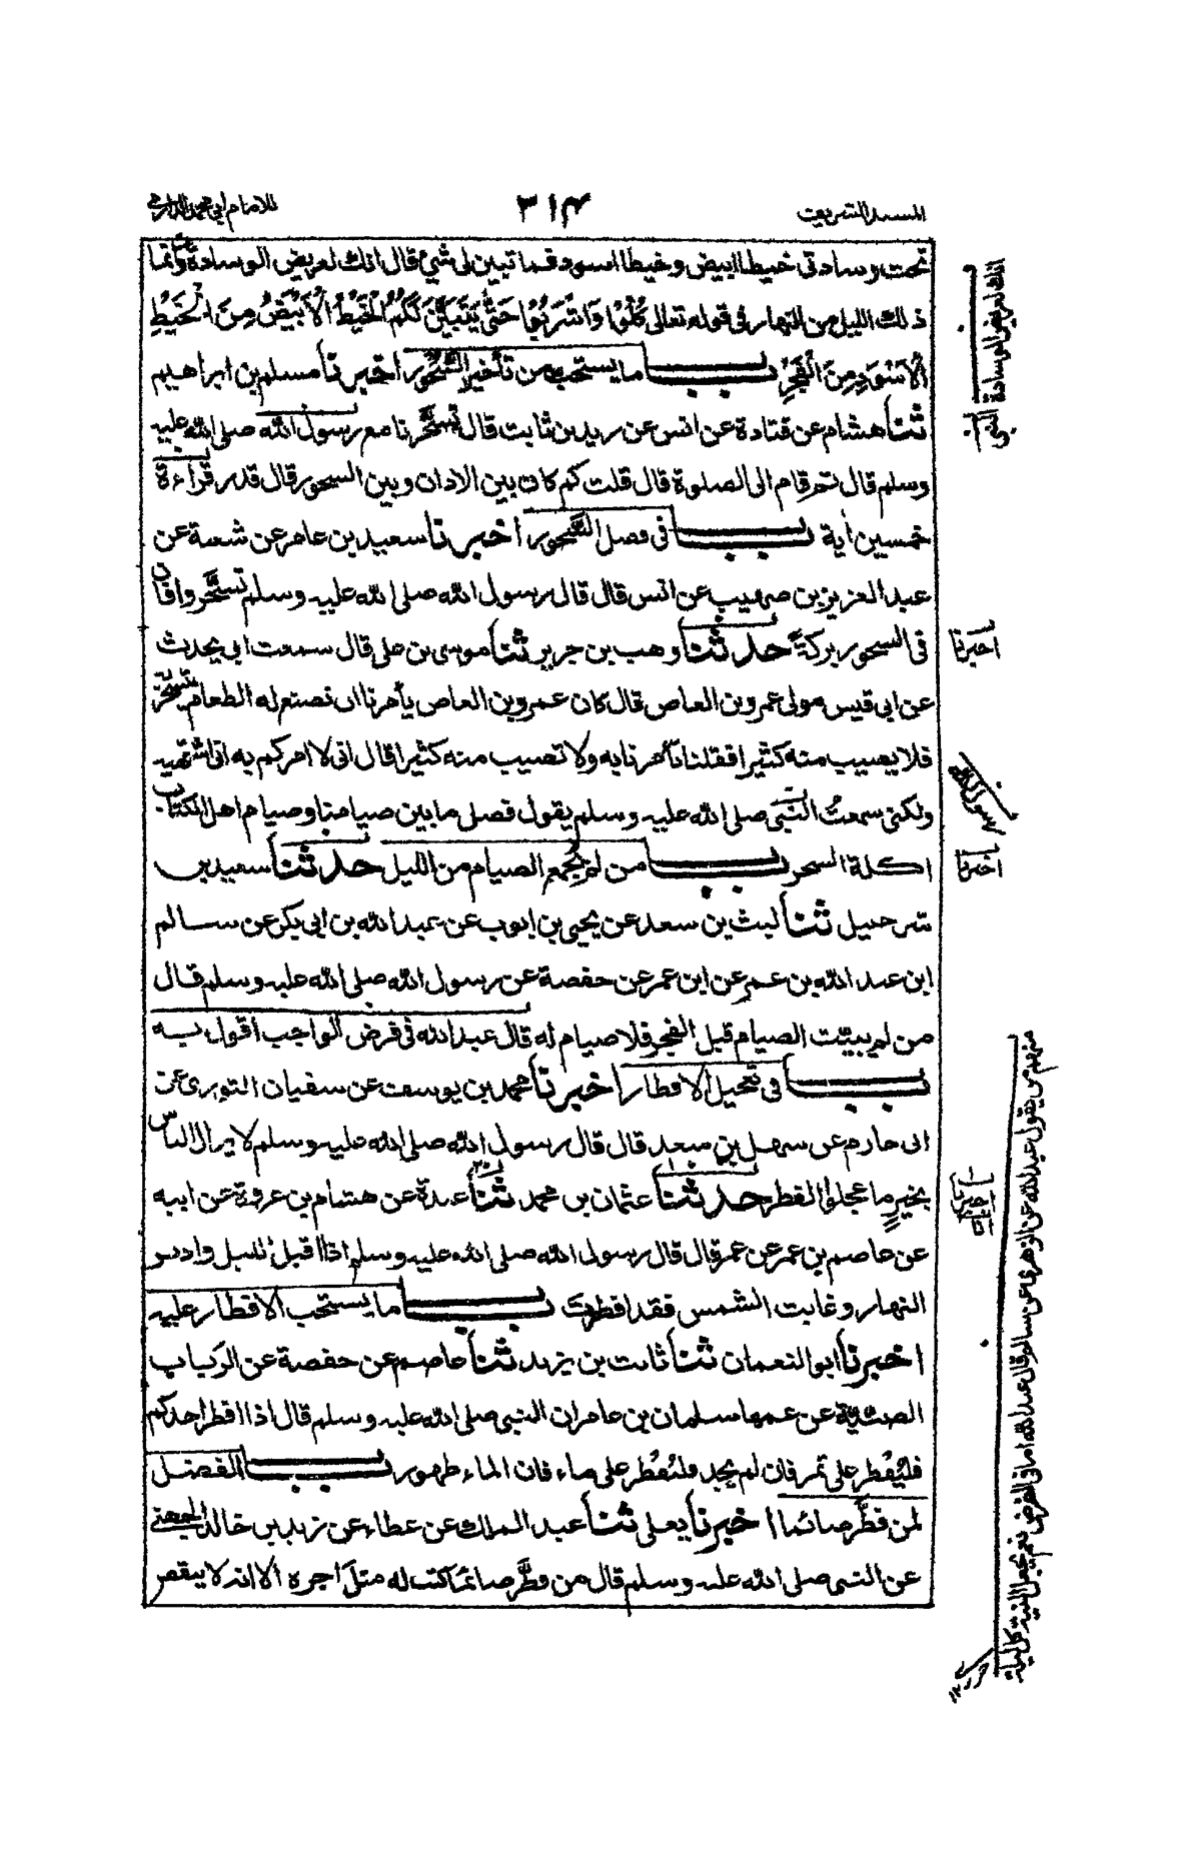 المسند الشريف
٣١٤
للامام ابي محمد الدارمي
تحت وسادتي خيطا ابيض وخيطا اسود فما تبين لي شئ قال انك لعريض الوسادة وانما
ذلك الليل من النهار في قوله تعالى كُلُوْا وَاشْرَبُوْا حَتّٰى يَتَبَيَّنَ لَكُمُ الْخَيْطُ الْاَبْيَضُ مِنَ الْخَيْطِ
الْاَسْوَدِ مِنَ الْفَجْرِ باب ما يستحب من تأخير السُّحُوْر اخبرنا مسلم بن ابراهيم
ثنا هشام عن قتادة عن انس عن زيد بن ثابت قال تسحّرنا مع رسول الله صلى الله عليه
وسلم قال ثم قام الى الصلوة قال قلت كم كان بين الاذان وبين السحور قال قدر قراءة
خمسين أية باب في فضل السَّحور اخبرنا سعيد بن عامر عن شعبة عن
عبد العزيز بن صهيب عن انس قال قال رسول الله صلى الله عليه وسلم تسحَّروا فان
في السحور بركةً حدثنا وهب بن جرير ثنا موسى بن على قال سمعت ابي يحدث
عن ابي قيس مولى عمرو بن العاص قال كان عمرو بن العاص يأمرنا ان نصنع له الطعام يتسحّر
فلا يصيب منه كثيرا فقلنا تأمرنا به ولا تصيب منه كثيرا قال اني لا امركم به اني اشتهيه
ولكني سمعتُ النبي صلى الله عليه وسلم يقول فصل ما بين صيامنا وصيام اهل الكتاب
اكلة السحر باب من لم يُجمع الصيام من الليل حدثنا سعيد بن
شرحبيل ثنا ليث بن سعد عن يحيى بن ايوب عن عبد الله بن ابي بكر عن سالم
ابن عبد الله بن عمر عن ابن عمر عن حفصة عن رسول الله صلى الله عليه وسلم قال
من لم يبيّت الصيام قبل الفجر فلا صيام له قال عبد الله في فرض الواجب اقول به
باب في تعجيل الافطار اخبرنا محمد بن يوسف عن سفيان الثوري عن
ابي حازم عن سهل بن سعد قال قال رسول الله صلى الله عليه وسلم لا يزال الناس
بخيرٍ ما عجلوا الفطر حدثنا عثمان بن محمد ثنا عبدة عن هشام بن عروة عن ابيه
عن عاصم بن عمر عن عمر قال قال رسول الله صلى الله عليه وسلم اذا اقبل الليل وادبر
النهار وغابت الشمس فقد افطرت باب ما يستحب الافطار عليه
اخبرنا ابو النعمان ثنا ثابت بن يزيد ثنا عاصم عن حفصة عن الرَباب
الضبّيّة عن عمها سلمان بن عامر ان النبي صلى الله عليه وسلم قال اذا افطر احدكم
فليُفطر على تمر فان لم يجد فليُفطر على ماء فان الماء طهور باب الفضل
لمن فطّر صائما اخبرنا يعلى ثنا عبد الملك عن عطاء عن زيد بن خالد الجهني
عن النبي صلى الله عليه وسلم قال من فطَّر صائما كتب له مثلَ اجره الا انه لا ينقص
انك لعريض الوسادة
النبي
اخبرنا
رسول الله
اخبرنا
اخبرنا